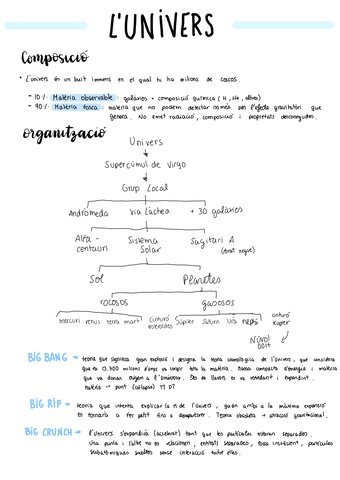 L'UNIVERS
Composició
* L'univers és un buit immens en el qual hi ha milions de cossos.
- 10%. Matèria observable: galàxies + composició química (H, He, altres)
- 90%. Matèria fosca: matèria que no podem detectar només per l'efecte gravitatori que
genera. No emet radiació, composició i propietats desconegudes.
organització
Univers
Supercúmul de Virgo
Grup Local
Andròmeda Via Làctea + 30 galàxies
Alfa - Sistema Sagitari A
centauri Solar (forat negre)
Sol Planetes
rocosos gasosos
mercuri venus terra mart cinturó Júpiter Saturn Urà neptú cinturó
asteroides Kuiper
Núvol
Oort
BIG BANG - teoria que significa gran explosió i designa la teoria cosmològica de l'Univers, que considera
que fa 13.700 milions d'anys va sorgir tota la matèria. Tanta compacta d'energia i matèria
que va donar origen a l'Univers. Des de llavors es va refredant i expandint.
Matèria -> punt
BIG RIP - teoria que intenta explicar la fi de l'univers, quan arribi a la màxima expansió
es tornarà a fer petit fins a desaparèixer. Teoria obsoleta -> atracció gravitacional.
BIG CRUNCH - l'univers s'expandirà (accelerar) tant que les partícules estaran separades.
Una punta i l'altre no es relacionen, entitats separades, tops irreversient, partícules
subatòmiques soltes sense interacció entre elles.